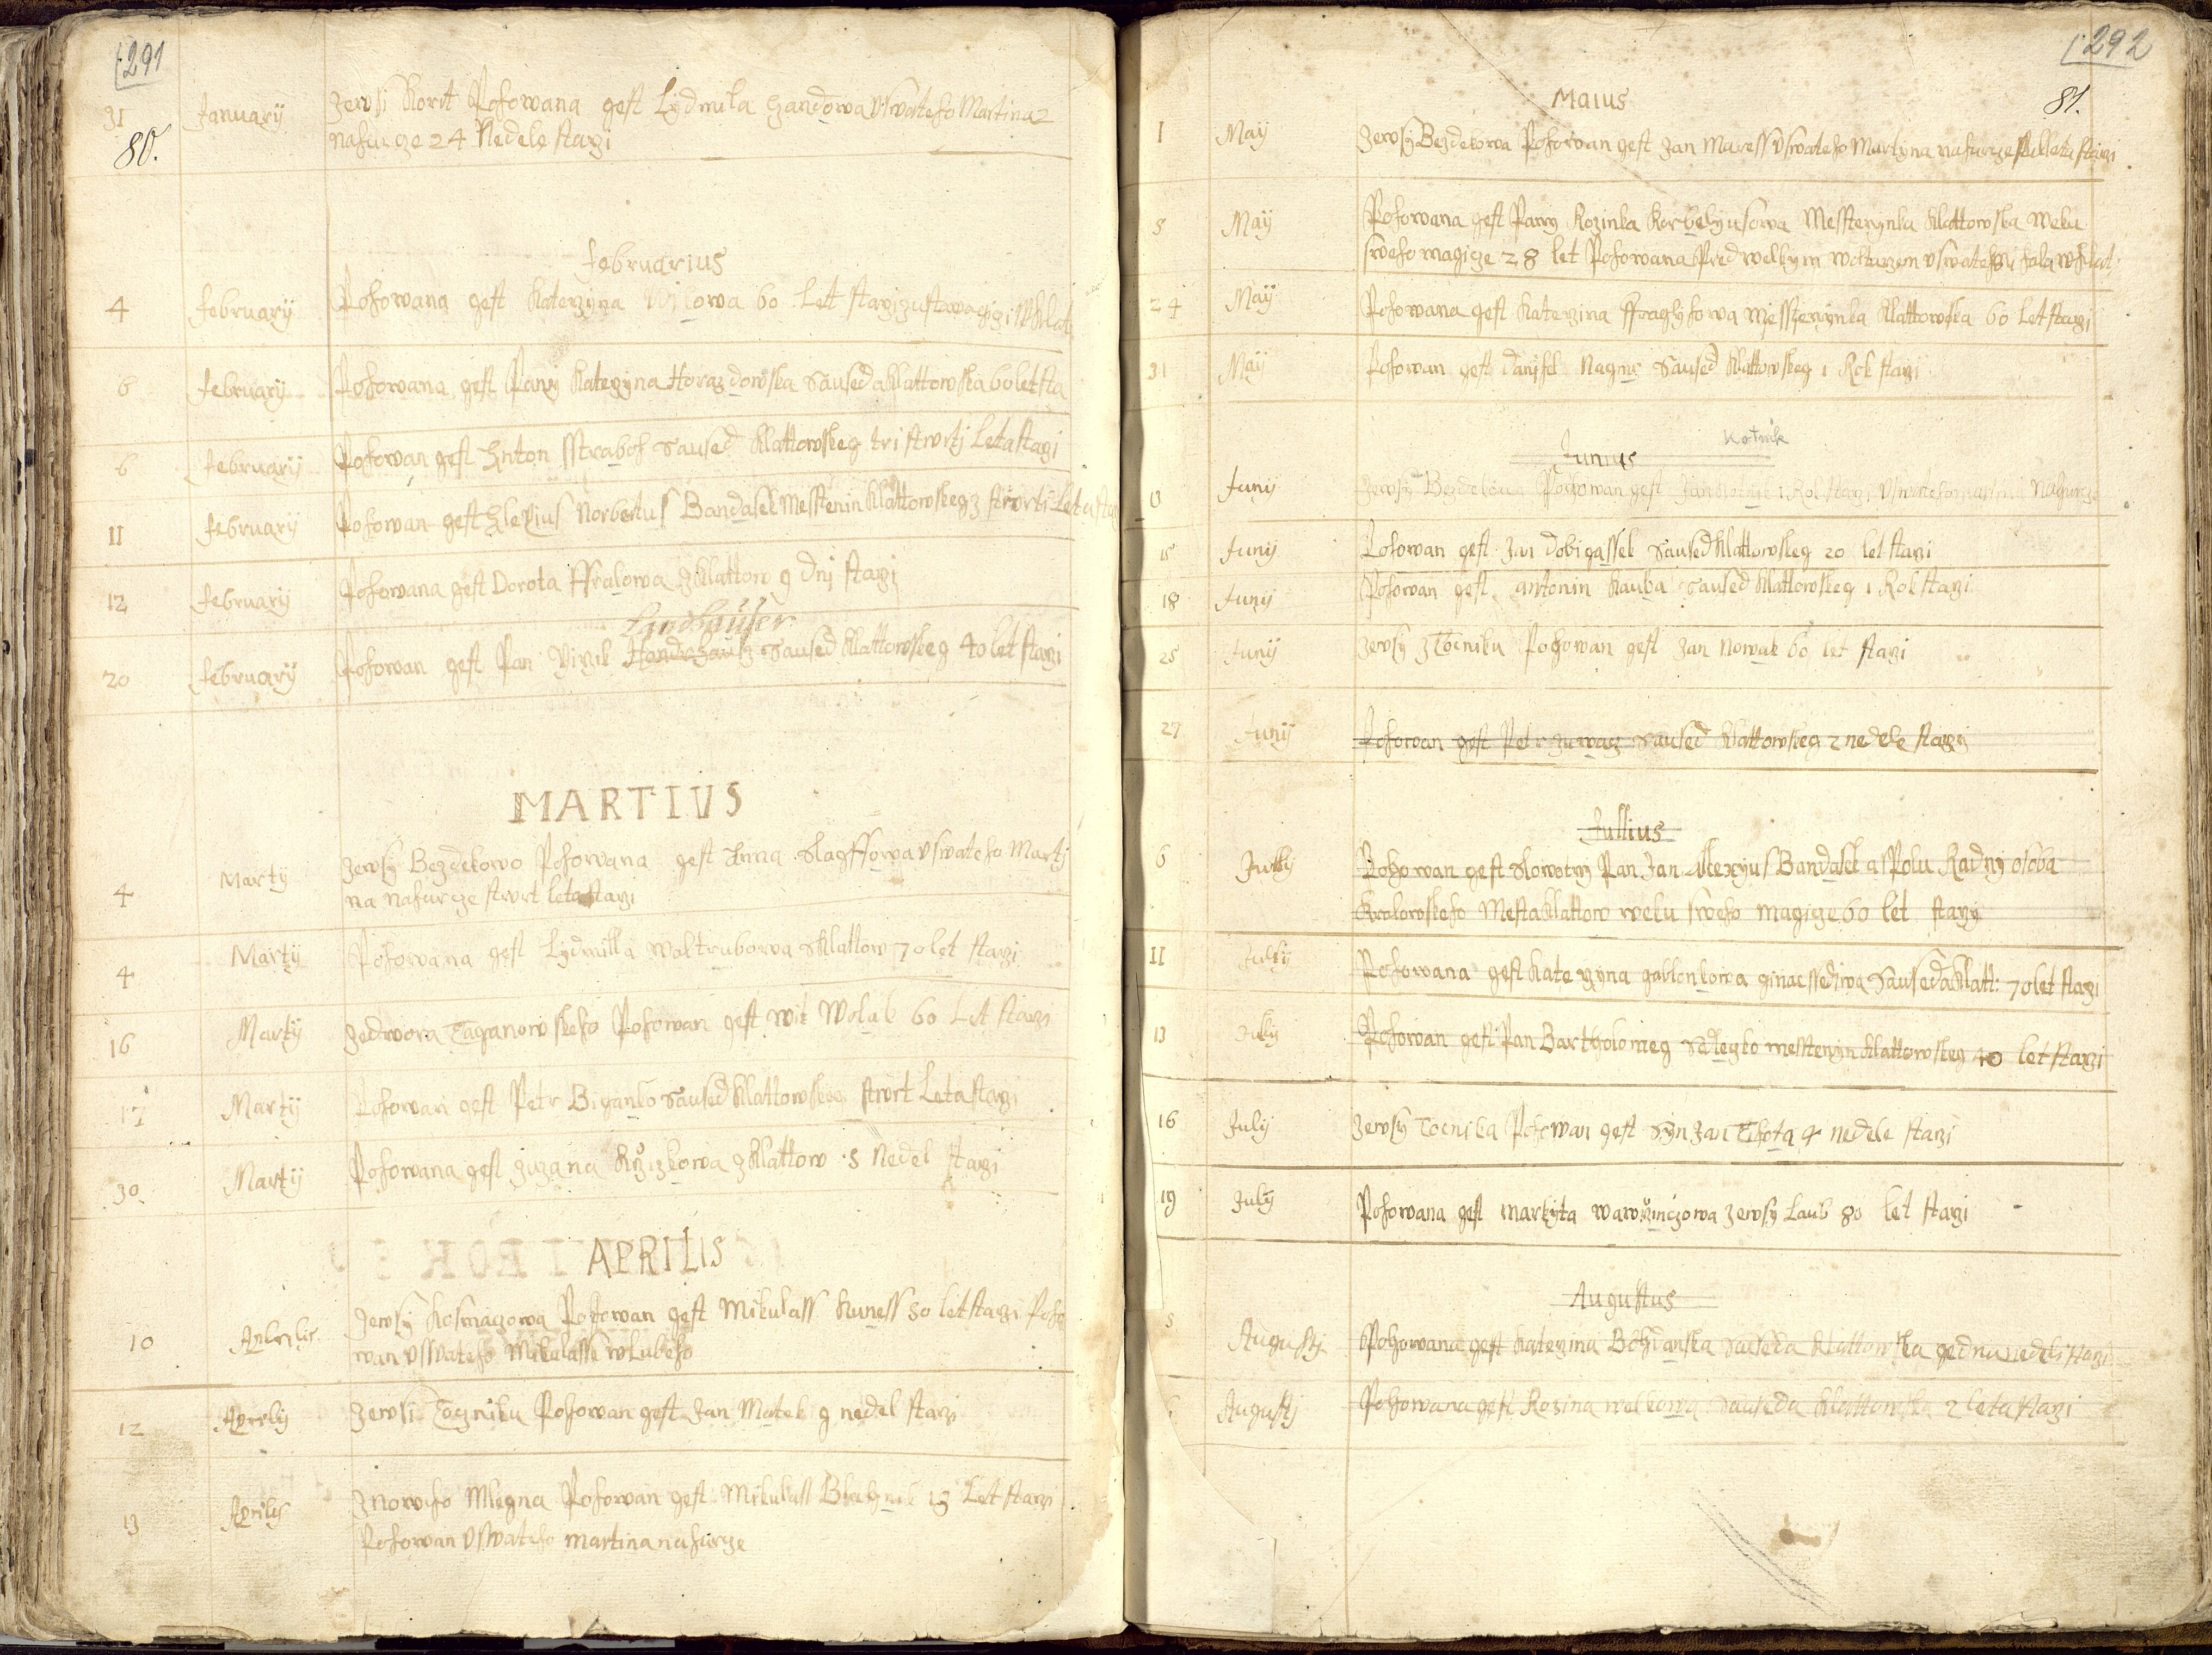 291
80.
31 January Zewsi Korit Pohowana gest Lydmila Handowa vswateho Martina
nahurze 24 Nedele starzi
Februarius
4 February Pohowana gest Katerzyna 60 Let starzi
6 February Pohowana gest Pany Kategyna Horazdowska Sauseda klattowska 60 let sta
6 February Pohowan gest Anton Sstraboch Saused klattowskeg tri stwrtj Leta starzi
11 February Pohowan gest Alexius Norbertus Bandasek Messtenin klattowskeg 3 stwrti Leta sta
12 February Pohowana gest Dorota ffralowa zklattow 9 dnj starzi
Landhauser
20 February Pohowan gest Pan Girzik Saused klattowskeg 40 let starzi
MARTIUS
4 Marty Zewsy Bezdekowo Pohowana gest Anna Slagffowa vswateho Martj
na nahurze stwrt leta starzi
4 Marty Pohowana gest Lydmilla Woltrubowa Sklattow 70 let starzi
16 Marty Zedwora Taganowskeho Pohowan gest Wit Wolak 60 Let starzi
17 Marty Pohowan gest Petr Biganko Saused klattowskeg stwrt Leta starzi
30 Marty Pohowana gest Zuzana Krzizkowa zklattow 5 Nedel starzi
APRILIS
10 Aprilis Zewsy Kosmaczowa Pohowan gest Mikulass Kuness 50 let starzi Poho
wan vsswateho Mikulasse wLubeho
12 Aprily Zewsi Toczniku Pohowan gest Jan Matek 9 nedel starzi
13 Aprilis Znoweho Mlegna Pohowan gest Mikulass Blahnik 13 Let starzi
Pohowan vswateho martina nahurze
292
81.
Maius
1 May Zewsy Bezdekowa Pohowan gest Jan Maress vswateho Martyna nahurze leta starzi
5 May Pohowana gest Pany Rozinka Korbelyusowa Messtenynka klattowska weku
sweho magize 28 let Pohowana Pred welkym woltarzem vswateho
24 May Pohowana gest Katerzina ffraghsowa messtenynka klattowska 60 Let starzi
31 May Pohowan gest danihel Nagmr Saused klattowskeg 1 Rok starzi
Kotnik
Junius
13 Juny Zewsy Bezdekowa Pohowan gest Jan 1 Rok starzi vswateho martina Nahurze
15 Juny Pohowan gest Jan dobigassek Saused klattowskeg 20 let starzi
18 Juny Pohowan gest antonin Kauba Saused klattowskeg 1 Rok starzi
25 Juny Zewsy ztocniku Pohowan gest Jan Nowak 60 let starzi
27 Juny Pohowan gest Petr Saused klattowskeg 2 nedele starzy
Jullius
6 July Pohowan gest Slowotny Pan Jan Alexyus Bandasek aspolu Radny osoba
Kralowskeho Mesta klattow weku sweho magize 60 let starzy
11 July Pohowana gest Katerzyna gablonkowa ginac ssediwa Sauseda klatt: 70 let starzi
13 July Pohowan gest Pan Bartholomeg Sedlegko messtenyn klattowskeg 40 let starzi
16 July Zewsy Tocnika Pohowan gest Syn Jan Tihota 4 nedele starzi
19 July Pohowana gest markyta wawrzinczowa Zewsy Laub 80 let starzi
Augustus
5 Augusty Pohowana gest Katerzina Bohdanska Sauseda klattowska gednu nedeli starzi
Augustj Pohowana gest Rosina welkowa Sauseda klattowska 2 leta starzi